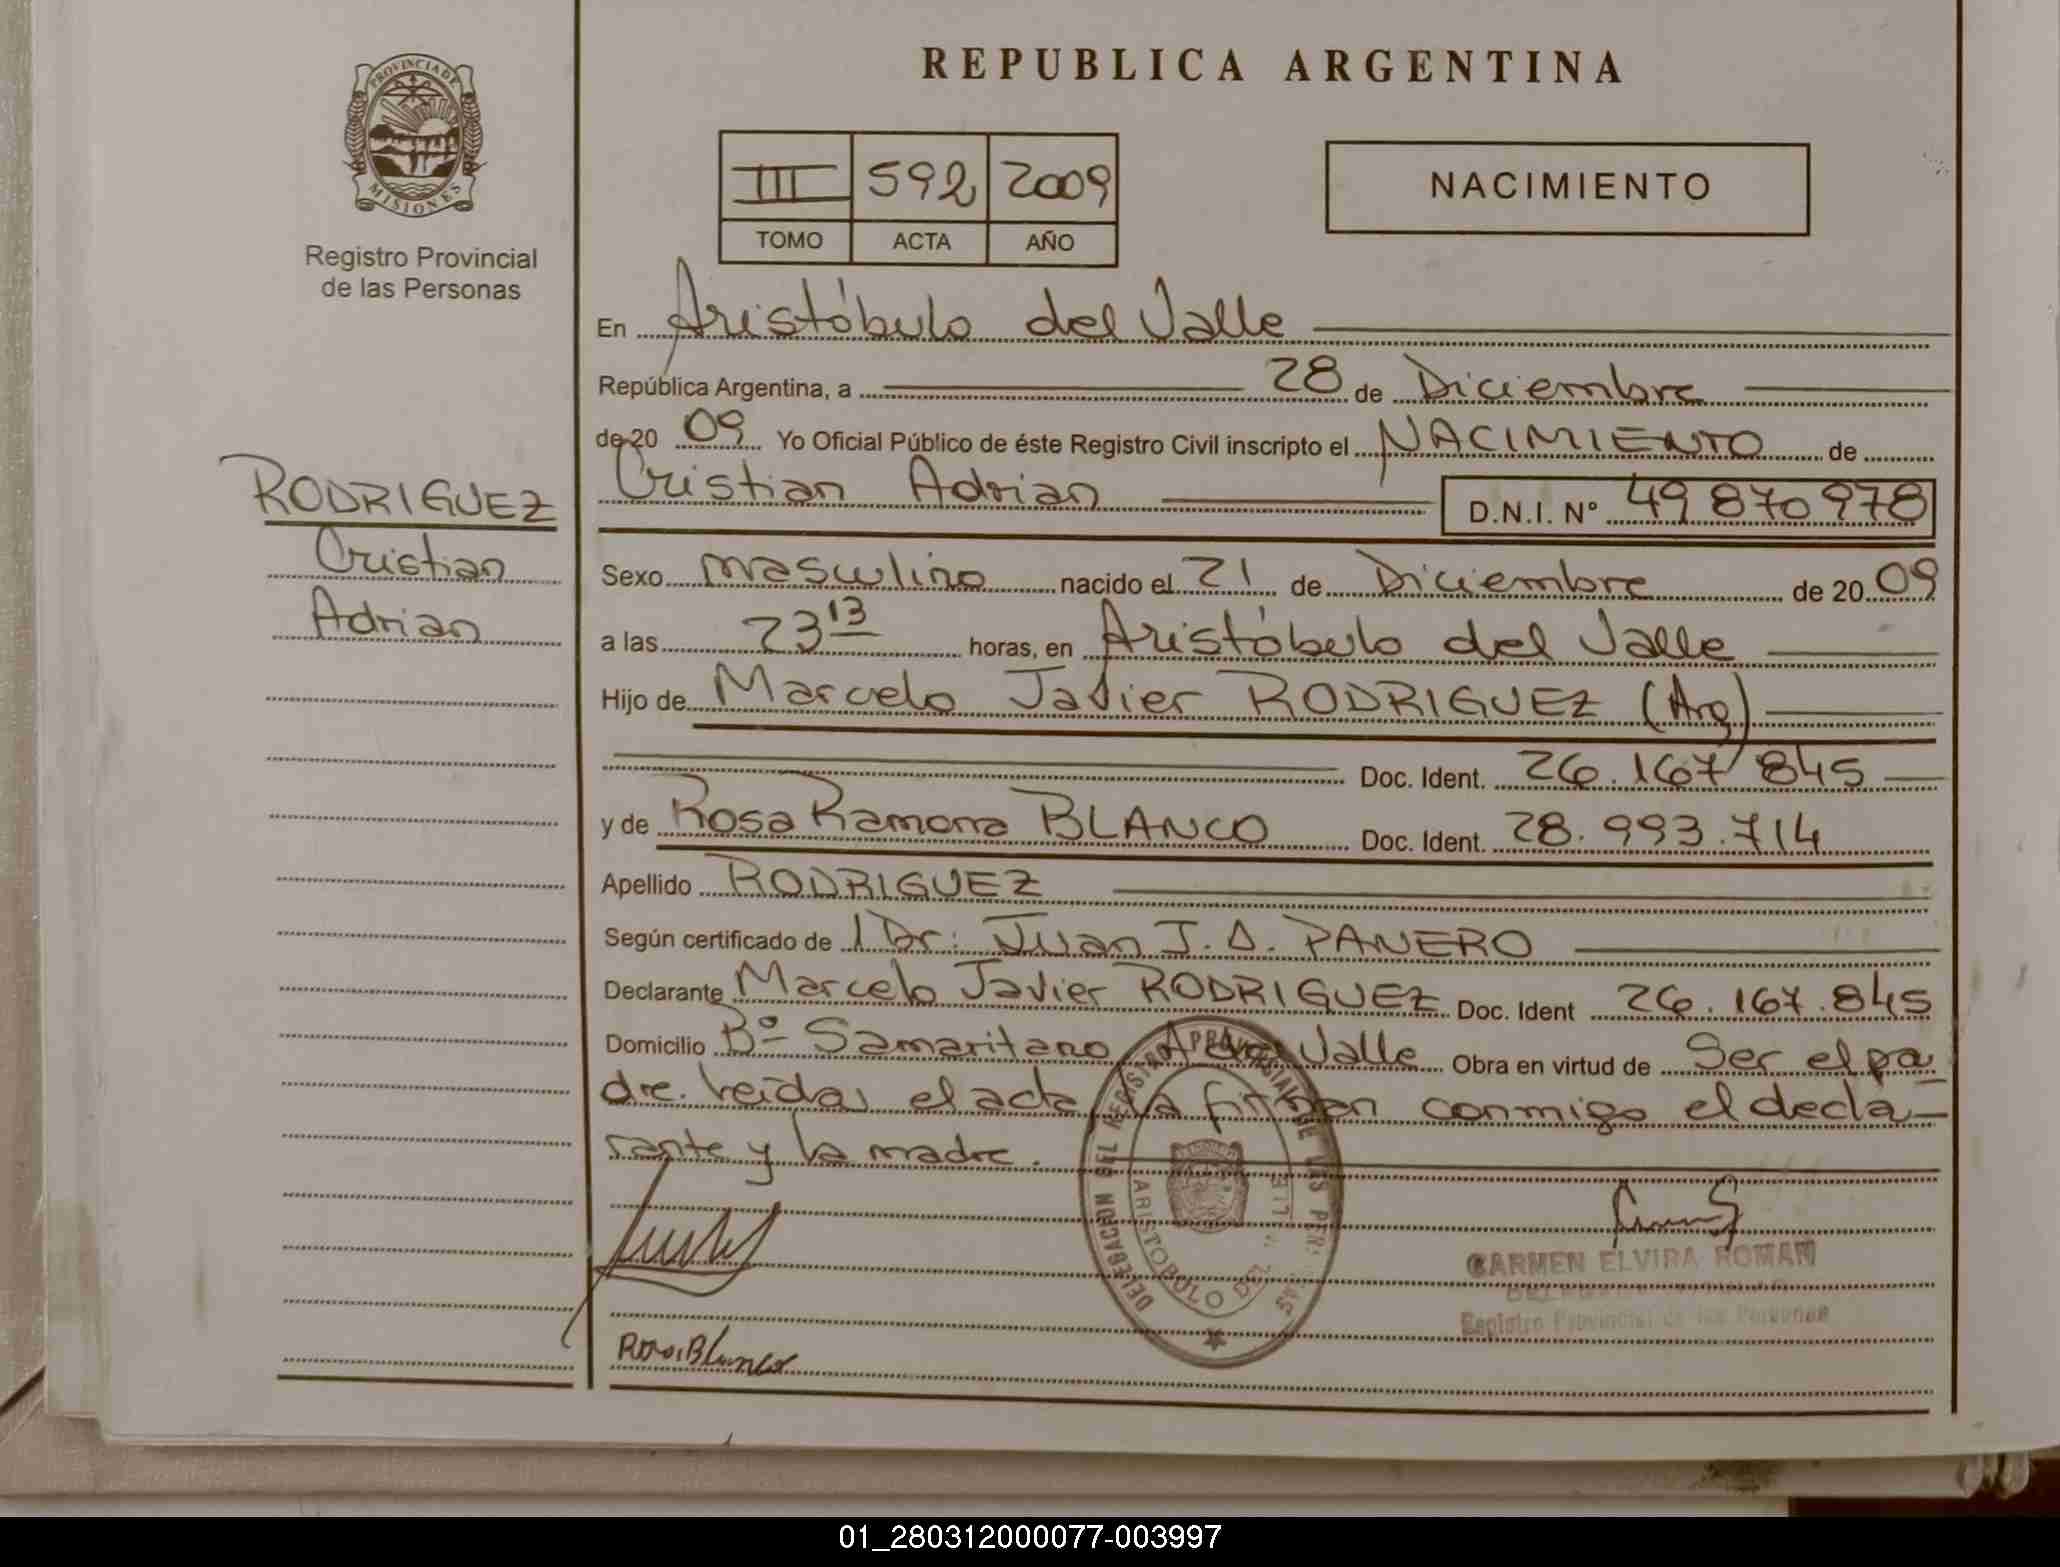 REPUBLICA ARGENTINA
PROVINCIA DE
MISIONES
Registro Provincial
de las Personas
III 592 2009
TOMO ACTA AÑO
NACIMIENTO
En Aristóbulo del Valle
República Argentina, a 28 de Diciembre
de 20 09 Yo Oficial Público de éste Registro Civil inscripto el NACIMIENTO de
Cristian Adrian D.N.I. Nº 49 870 978
RODRIGUEZ
Cristian
Adrian
Sexo masculino nacido el 21 de Diciembre de 20 09
a las 23 13 horas, en Aristóbulo del Valle
Hijo de Marcelo Javier RODRIGUEZ (Arg)
Doc. Ident. 26.167 845
y de Rosa Ramona BLANCO Doc. Ident. 28.993.714
Apellido RODRIGUEZ
Según certificado de Dr: Juan J. D. PANERO
Declarante Marcelo Javier RODRIGUEZ Doc. Ident 26.167.845
Domicilio Bº Samaritano A del Valle Obra en virtud de Ser el pa-
dre. Leida el acta la firman conmigo el decla-
rante y la madre.
DELEGACION DEL REGISTRO PROVINCIAL DE LAS PERSONAS
ARISTOBULO DEL VALLE
CARMEN ELVIRA ROMAN
Registro Provincial de las Personas
Rosa Blanco
01_280312000077-003997